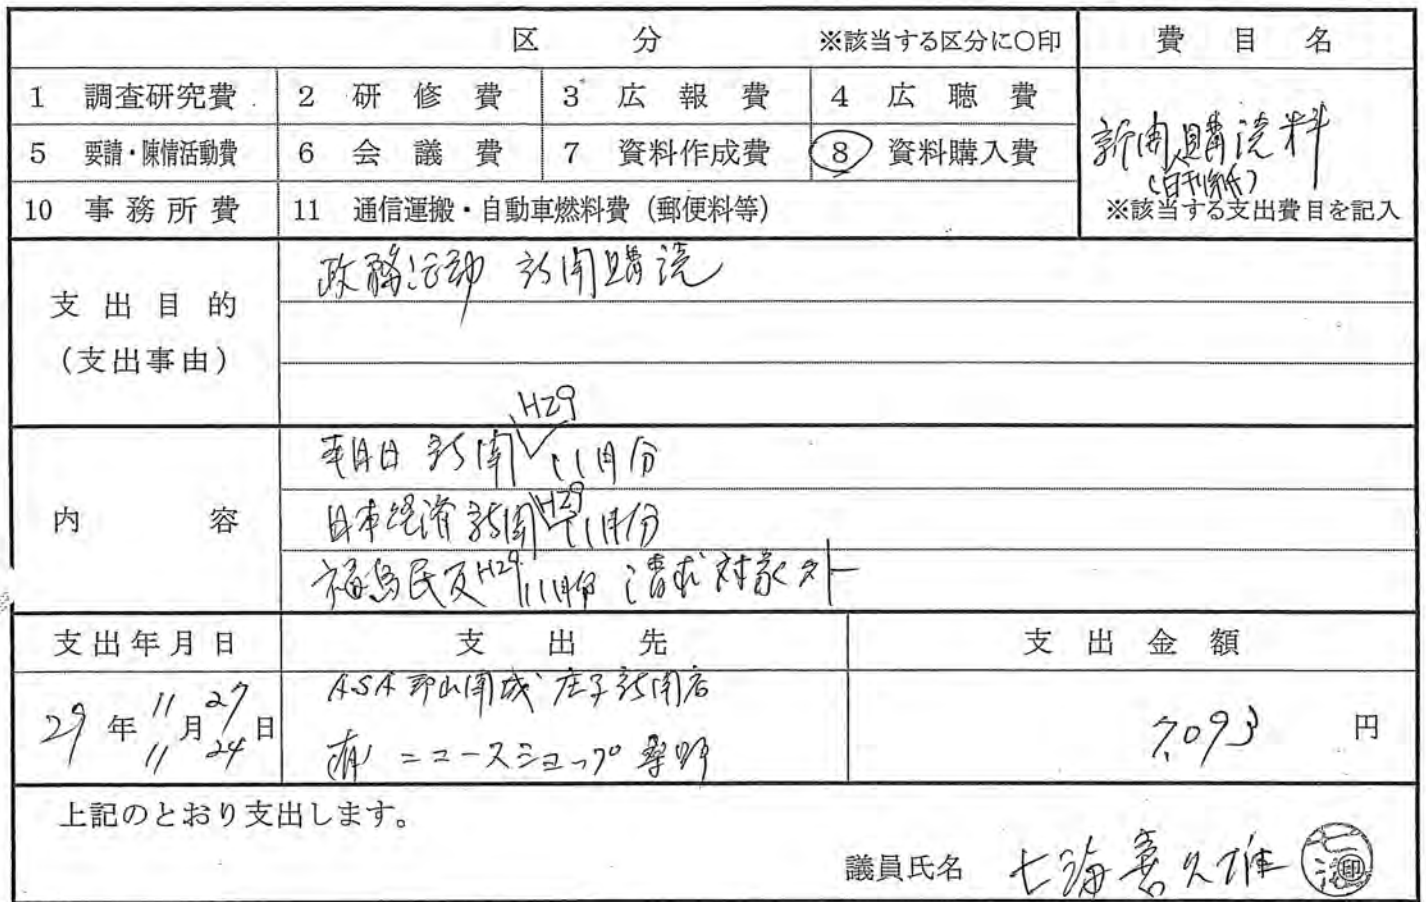 区 分 ※該当する区分に○印 費 目 名
1 調査研究費 2 研 修 費 3 広 報 費 4 広 聴 費
5 要請・陳情活動費 6 会 議 費 7 資料作成費 8 資料購入費
新聞購読料
(日刊紙)
10 事 務 所 費 11 通信運搬・自動車燃料費（郵便料等）
※該当する支出費目を記入
支 出 目 的
(支出事由)
政務活動 新聞購読
内 容
朝日新聞 H29 11月分
日本経済新聞 H29 11月分
福島民友 H29 11月分 請求対象外
支出年月日 支 出 先 支 出 金 額
29年 11月 27日
11 24
ASA郡山開成 庄子新聞店
(有)ニュースショップ 桑野
7,093 円
上記のとおり支出します。
議員氏名 七海喜久雄 印